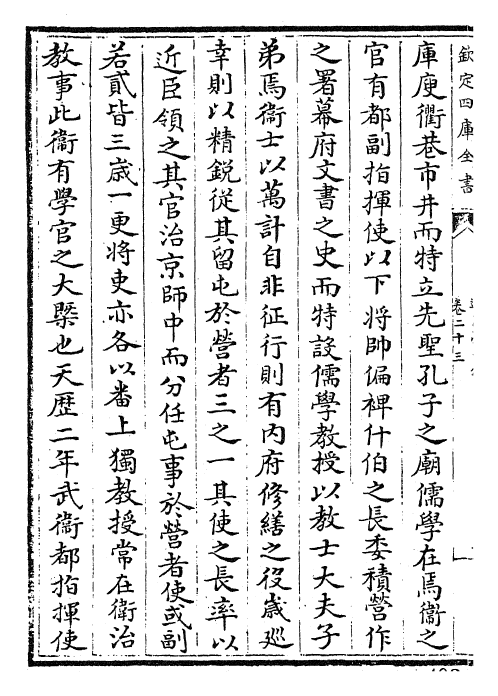 欽定四庫全書
卷二十三
庫庾衢巷市井而特立先聖孔子之廟儒學在焉衞之
官有都副指揮使以下將帥偏裨什伯之長委積營作
之署幕府文書之史而特設儒學教授以教士大夫子
弟焉衞士以萬計自非征行則有内府修繕之役歲廵
幸則以精鋭從其留屯於營者三之一其使之長率以
近臣領之其官治京師中而分任屯事於營者使或副
若貳皆三歲一更將吏亦各以番上獨教授常在衛治
教事此衞有學官之大槩也天歷二年武衞都指揮使